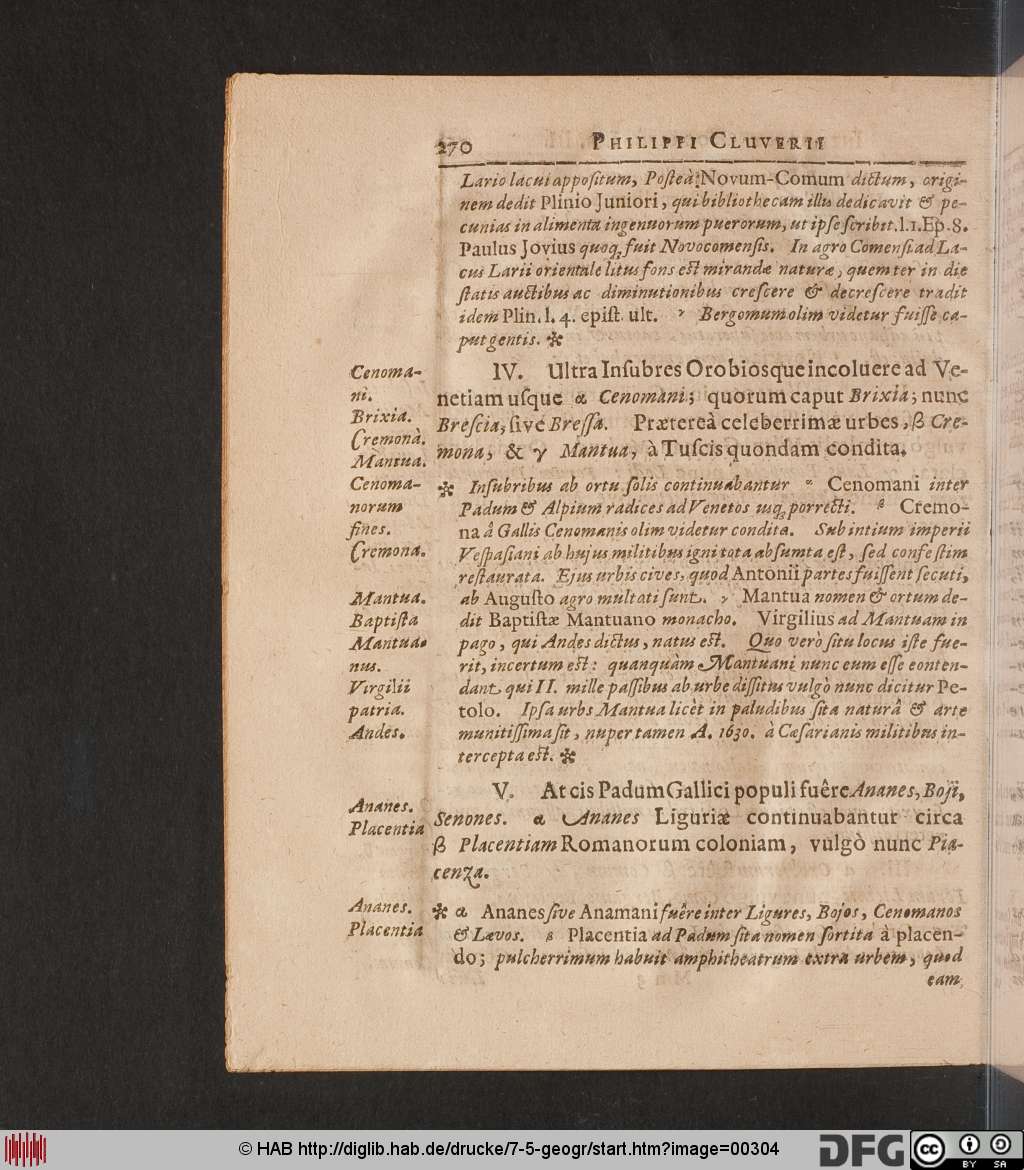 270 PHILIPPI CLUVERII
Lario lacui appoſitum, Poſteà: Novum-Comum dictum, origi-
nem dedit Plinio Juniori, qui bibliothecam illis dedicavit & pe-
cunias in alimenta ingenuorum puerorum, ut ipſe ſcribit. l.1. Ep. 8.
Paulus Jovius quoq; fuit Novocomenſis. In agro Comenſi ad La-
cus Larii orientale litus fons eſt mirandæ naturæ, quem ter in die
ſtatis auctibus ac diminutionibus creſcere & decreſcere tradit
idem Plin. l. 4. epiſt. ult. γ Bergomum olim videtur fuiſſe ca-
put gentis. ✻
Cenoma-
ni.
Brixia.
Cremona.
Mantua.
IV. Ultra Inſubres Orobiosque incoluere ad Ve-
netiam uſque α Cenomani; quorum caput Brixia; nunc
Breſcia, ſive Breſſa. Prætereà celeberrimæ urbes, β Cre-
mona, & γ Mantua, à Tuſcis quondam condita.
Cenoma-
norum
fines.
Cremona.
Mantua.
Baptiſta
Mantua-
nus.
Virgilii
patria.
Andes.
✻ Inſubribus ab ortu ſolis continuabantur α Cenomani inter
Padum & Alpium radices ad Venetos uſq; porrecti. β Cremo-
na â Gallis Cenomanis olim videtur condita. Sub intium imperii
Veſpaſiani ab hujus militibus igni tota abſumta eſt, ſed confeſtim
reſtaurata. Ejus urbis cives, quod Antonii partes fuiſſent ſecuti,
ab Auguſto agro multati ſunt. γ Mantua nomen & ortum de-
dit Baptiſtæ Mantuano monacho. Virgilius ad Mantuam in
pago, qui Andes dictus, natus eſt. Quo verò ſitu locus iſte fue-
rit, incertum eſt: quanquàm Mantuani nunc eum eſſe eonten-
dant qui II. mille paſſibus ab urbe diſſitus vulgò nunc dicitur Pe-
tolo. Ipſa urbs Mantua licèt in paludibus ſita naturâ & arte
munitiſſima ſit, nuper tamen A. 1630. à Cæſarianis militibus in-
tercepta eſt. ✻
Ananes.
Placentia
V. At cis Padum Gallici populi fuêre Ananes, Boji,
Senones. α Ananes Liguriæ continuabantur circa
β Placentiam Romanorum coloniam, vulgò nunc Pia-
cenza.
Ananes.
Placentia
✻ α Ananes ſive Anamani fuêre inter Ligures, Bojos, Cenomanos
& Lævos. β Placentia ad Padum ſita nomen ſortita à placen-
do; pulcherrimum habuit amphitheatrum extra urbem, quod
eam
© HAB http://diglib.hab.de/drucke/7-5-geogr/start.htm?image=00304
DFG
cc
BY SA